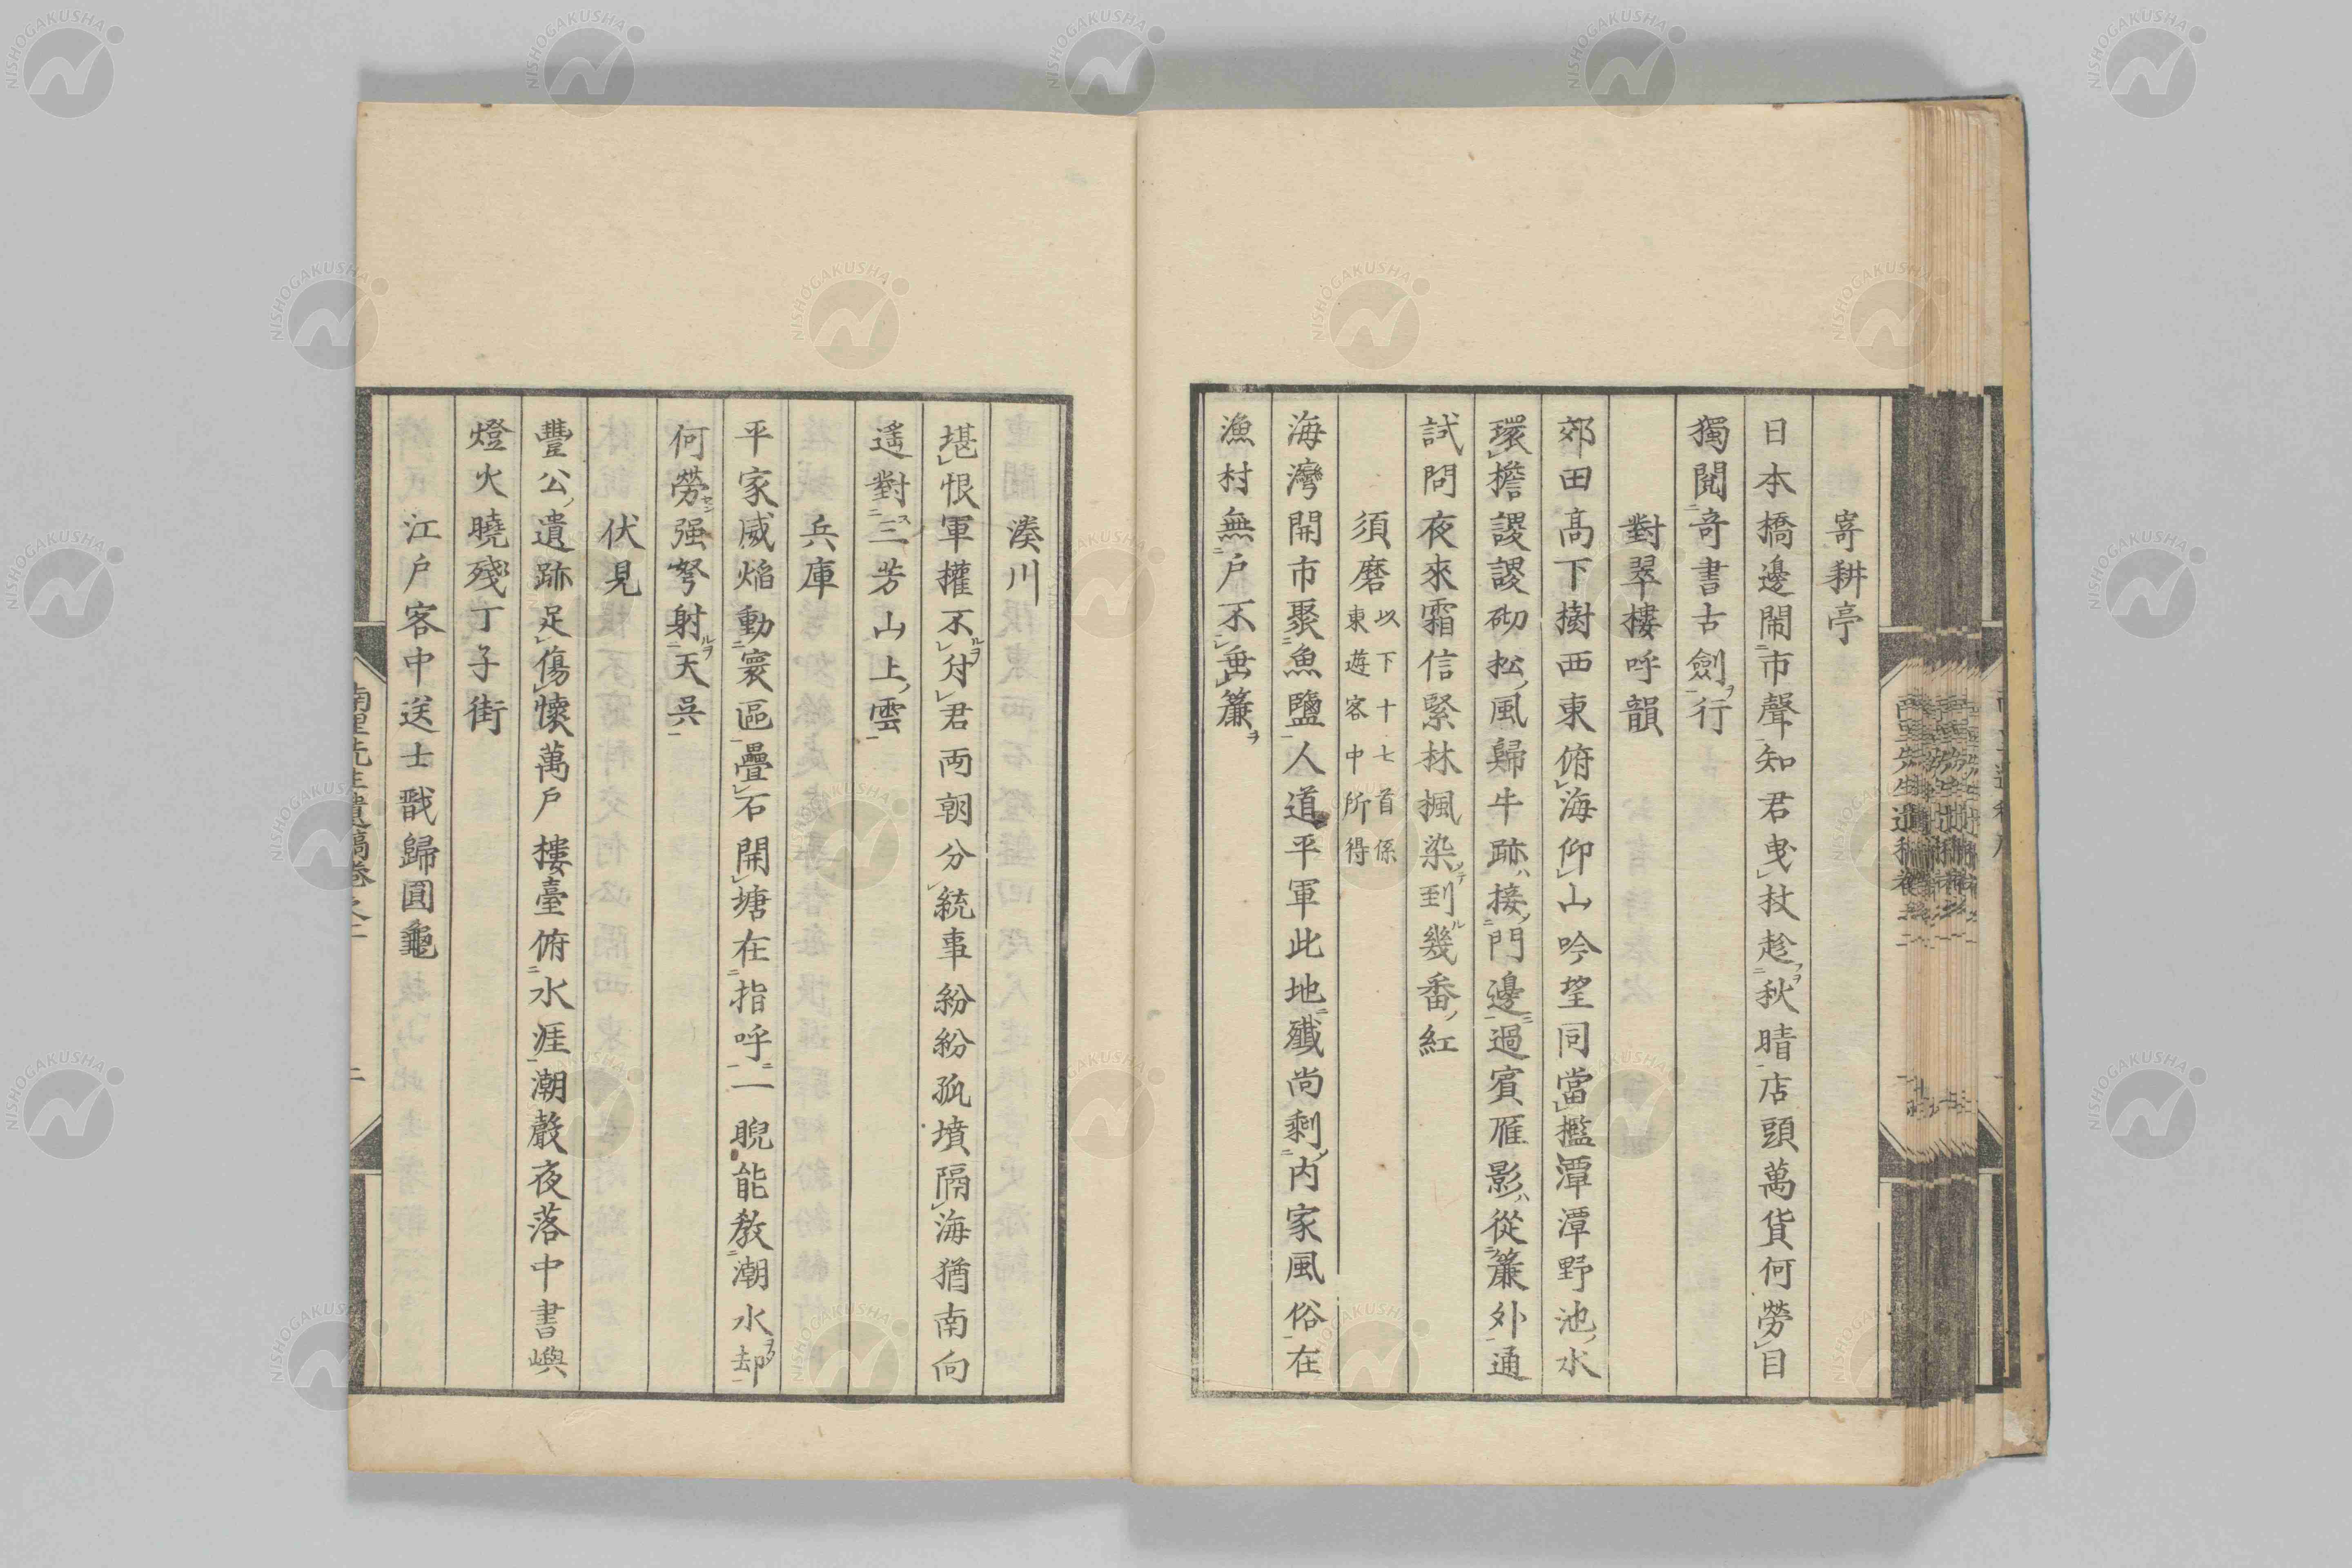 寄耕亭
日本橋邊閙市聲知君曳杖趁秋晴店頭萬貨何勞目
獨閲奇書古劍行
對翠樓呼韻
郊田高下樹西東俯海仰山吟望同當檻潭潭野池水
環檐謖謖砌松風歸牛跡接門邊過賓雁影從簾外通
試問夜來霜信緊林楓染到幾番紅
須磨以下十七首係東遊客中所得
海灣開市聚魚鹽人道平軍此地殲尚剩内家風俗在
漁村無戸不垂簾
湊川
堪恨軍權不付君両朝分統事紛紛孤墳隔海猶南向
遙對三芳山上雲
兵庫
平家威焔動寰區疊石開塘在指呼一睨能教潮水却
何勞强弩射天呉
伏見
豐公遺跡足傷懷萬戸樓臺俯水涯潮聲夜落中書嶼
燈火曉殘丁子街
江戸客中送士戩歸圓龜
南里先生遺稿卷之二
二
NISHOGAKUSHA